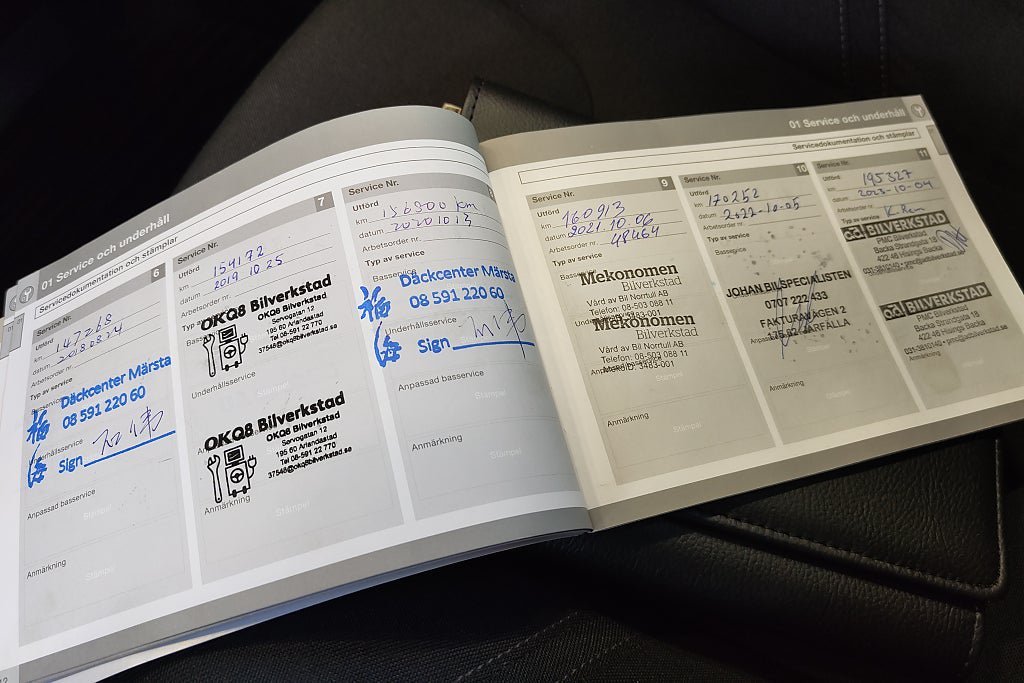 01 Service och underhåll
Servicedokumentation och stämplar
6
Service Nr.
Utförd
km 147268
datum 20180824
Arbetsorder nr.
Typ av service
Däckcenter Märsta
08 591 220 60
Underhållsservice
Sign
Anpassad basservice
Stämpel
Anmärkning
Stämpel
7
Service Nr.
Utförd
km 154172
datum 2019.10.25
Arbetsorder nr.
OKQ8 Bilverkstad
OKQ8 Bilverkstad
Servogatan 12
195 60 Arlandastad
Tel 08-591 22 770
37548@okq8bilverkstad.se
Underhållsservice
Stämpel
OKQ8 Bilverkstad
OKQ8 Bilverkstad
Servogatan 12
195 60 Arlandastad
Tel 08-591 22 770
37548@okq8bilverkstad.se
Anmärkning
Stämpel
Service Nr.
Utförd
km 156900 km
datum 20201013
Arbetsorder nr.
Typ av service
Basservice
Däckcenter Märsta
08 591 220 60
Underhållsservice
Sign
Anpassad basservice
Stämpel
Anmärkning
Stämpel
01 Service och underhåll
Servicedokumentation och stämplar
Service Nr.
9
Utförd
km 160913
datum 2021.10.06
Arbetsorder nr. 48464
Typ av service
Mekonomen
Bilverkstad
Vård av Bil Norrtull AB
Telefon: 08-503 088 11
MekoID: 3483-001
Mekonomen
Bilverkstad
Vård av Bil Norrtull AB
Telefon: 08-503 088 11
MekoID: 3483-001
Stämpel
Anmärkning
Stämpel
Service Nr.
10
Utförd
km 170252
datum 2022-10-05
Arbetsorder nr.
Typ av service
Basservice
JOHAN BILSPECIALISTEN
0707 222 433
FAKTURAVÄGEN 2
175 62 JÄRFÄLLA
Stämpel
Anmärkning
Stämpel
Service Nr.
11
Utförd
km 195327
datum 2023-10-04
Arbetsorder nr.
Typ av service
ad BILVERKSTAD
PMC Bilverkstad
Backa Strandgata 18
422 46 Hisings Backa
ad BILVERKSTAD
PMC Bilverkstad
Backa Strandgata 18
422 46 Hisings Backa
Anmärkning